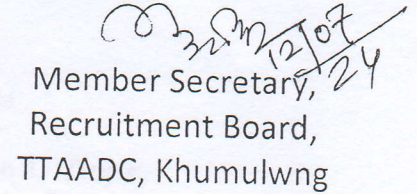 12/07/24
Member Secretary,
Recruitment Board,
TTAADC, Khumulwng